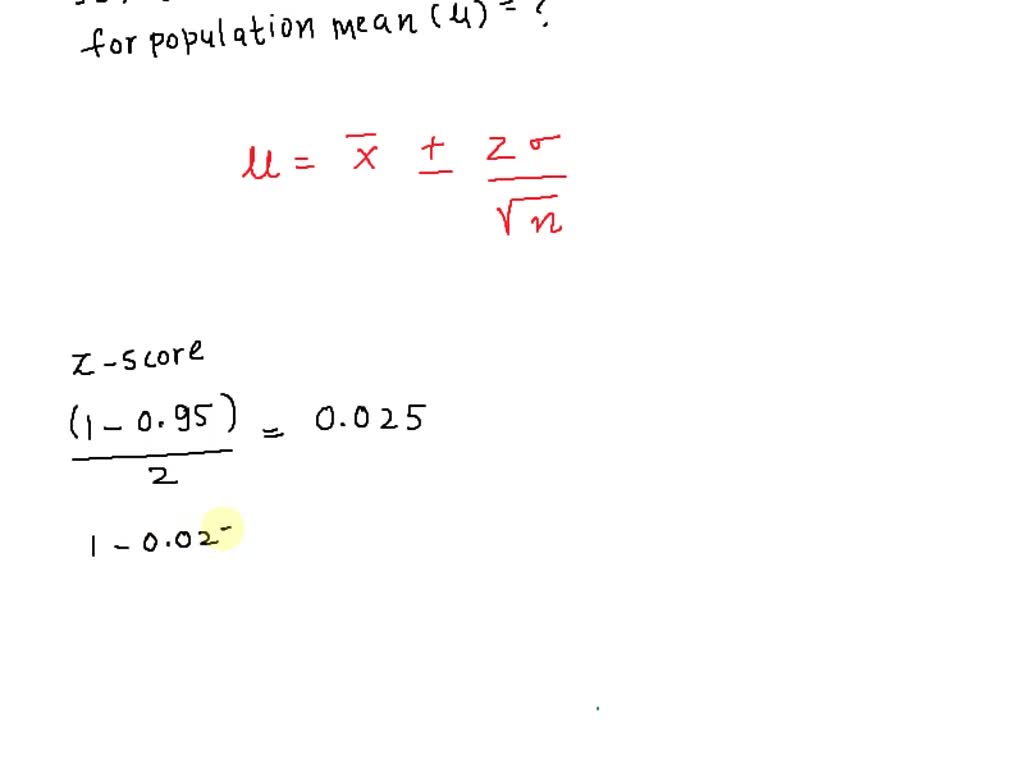 for population mean (μ) = ?
μ = x̄ ± zσ
√n
z-score
(1-0.95) = 0.025
2
1-0.02